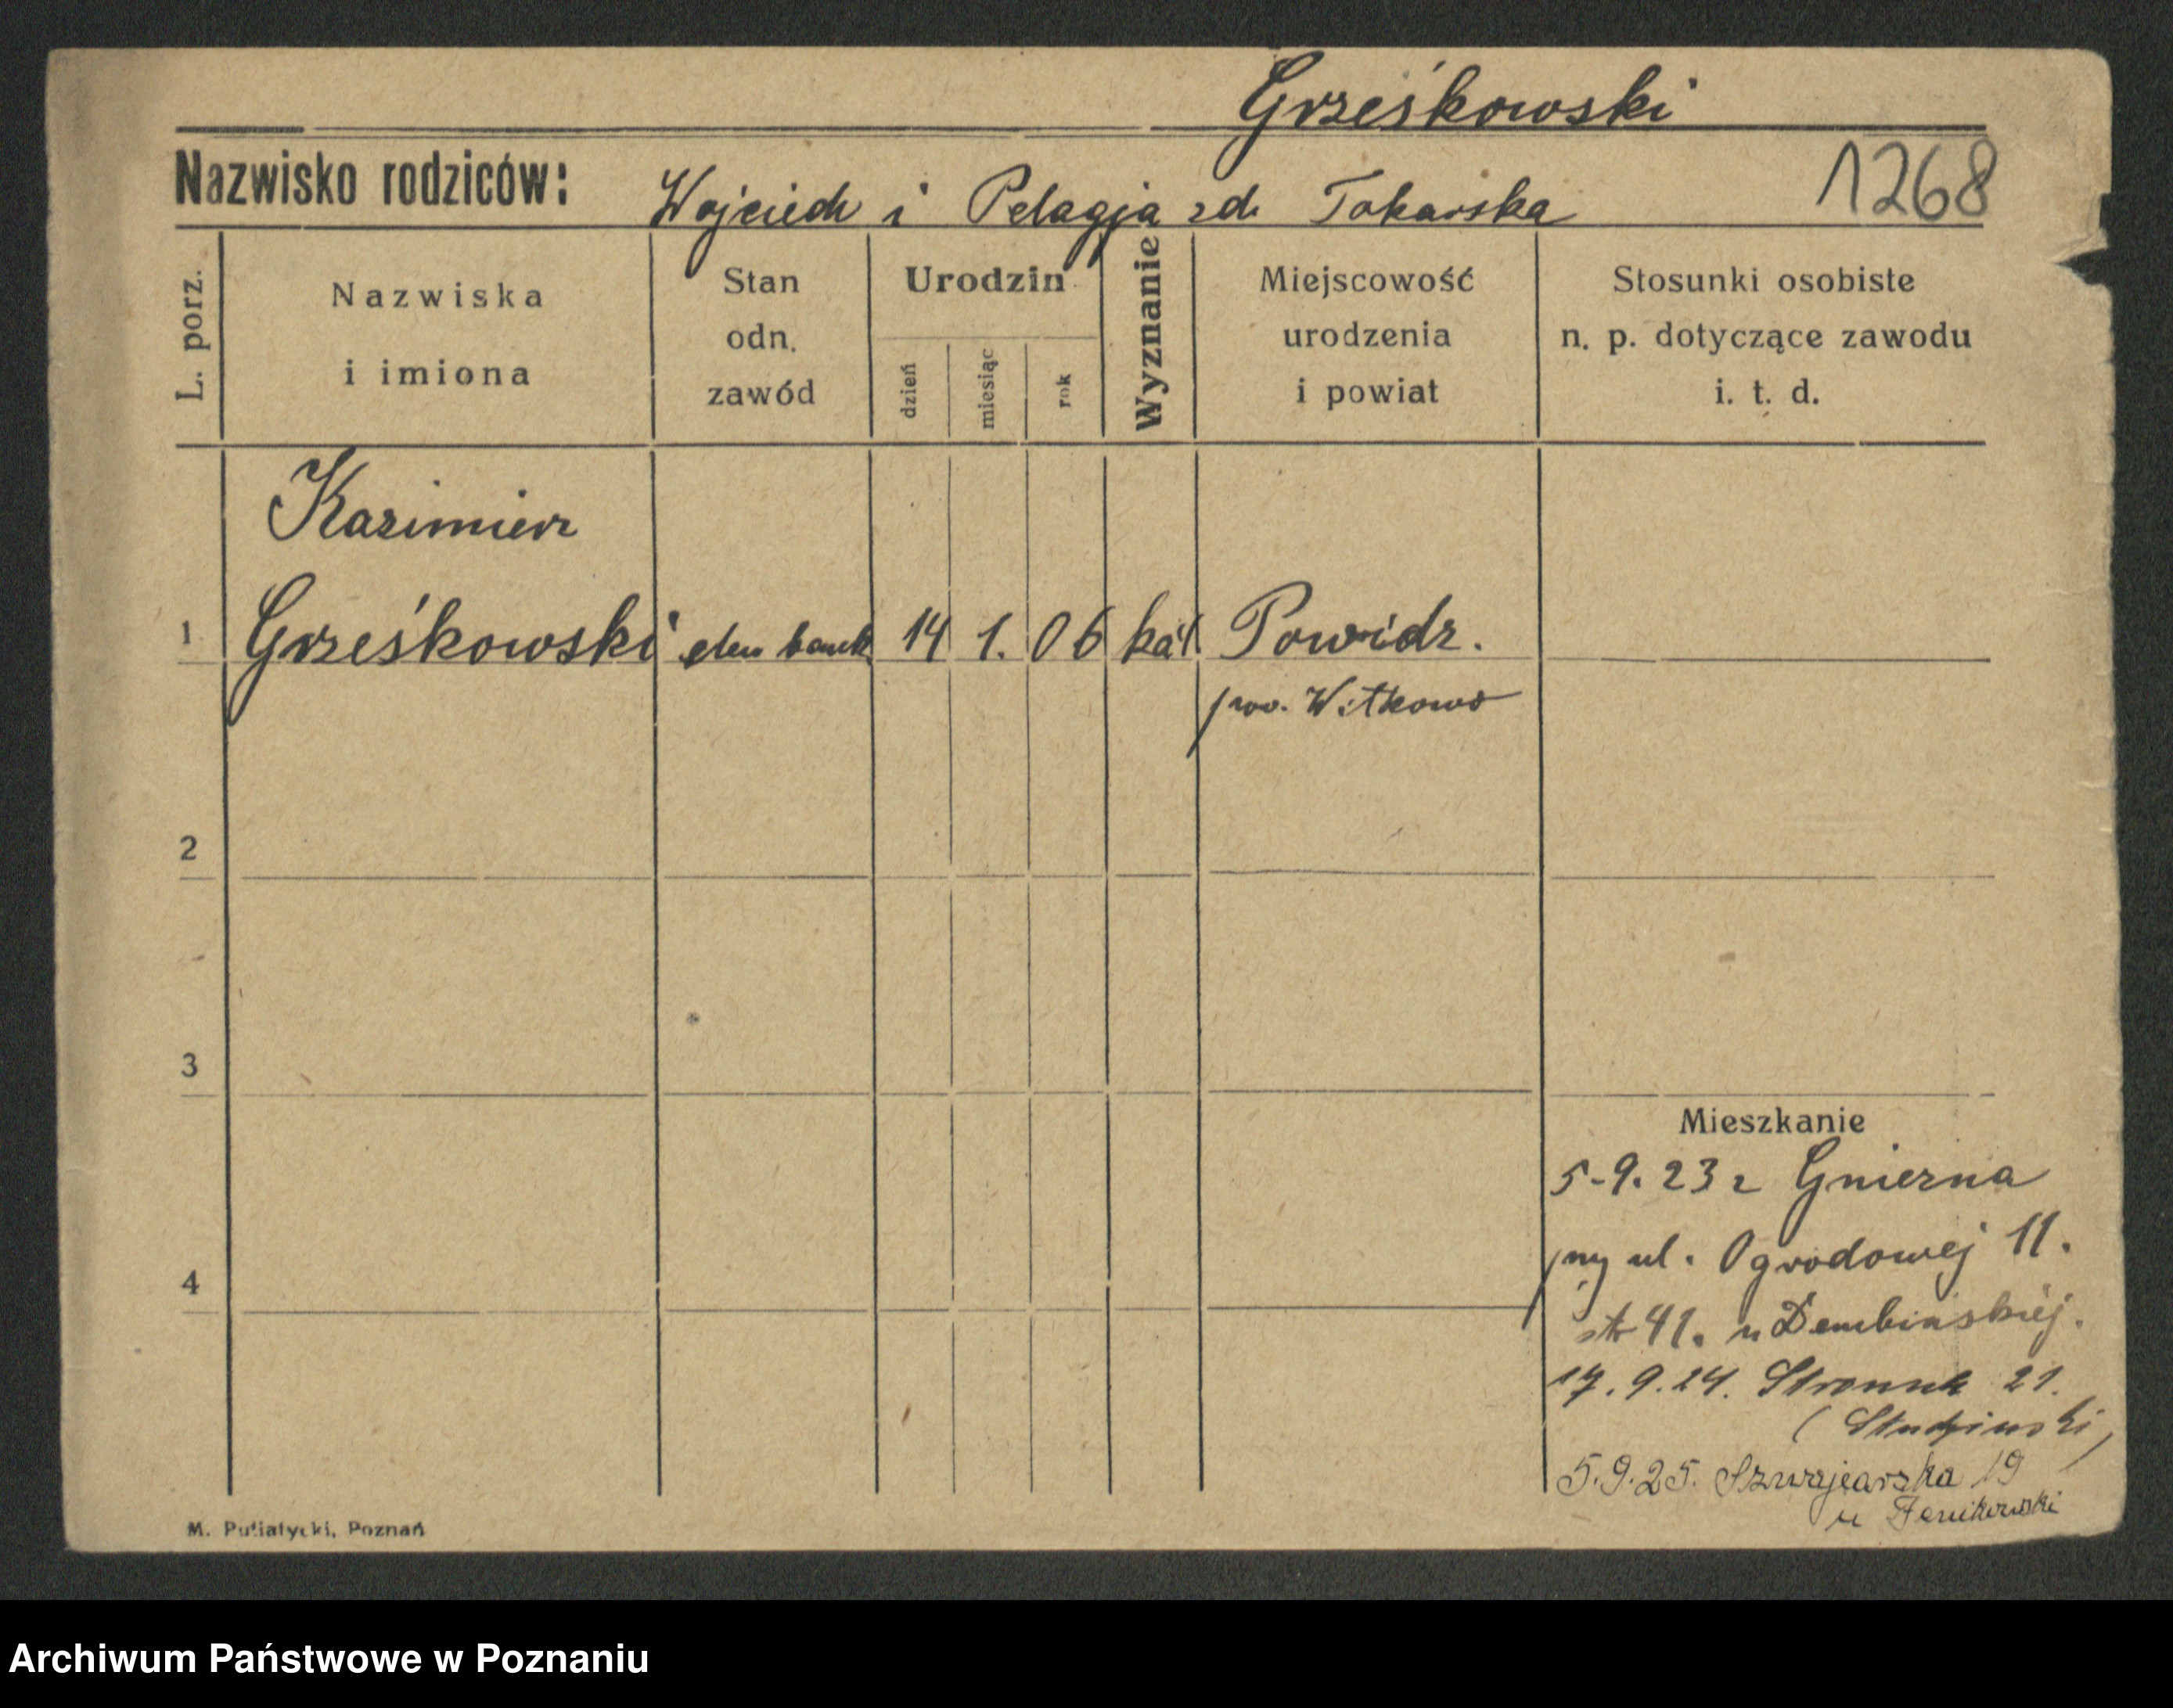 Grześkowski
Nazwisko rodziców: Wojciech i Pelagja zd. Tokarska 1268
L. porz.
Nazwiska
i imiona
Stan
odn.
zawód
Urodzin
dzień
miesiąc
rok
Wyznanie
Miejscowość
urodzenia
i powiat
Stosunki osobiste
n. p. dotyczące zawodu
i. t. d.
Kazimierz
1 Grześkowski elew bank. 14 1. 06 kat. Powidz.
pow. Witkowo
2
3
4
Mieszkanie
5-9.23 z Gniezna
przy ul. Ogrodowej 11.
41. u Dembińskiej.
17.9.24. 21.
(Studziński)
5.9.25. Szwajcarska 19
u
M. Putiatycki, Poznań
Archiwum Państwowe w Poznaniu